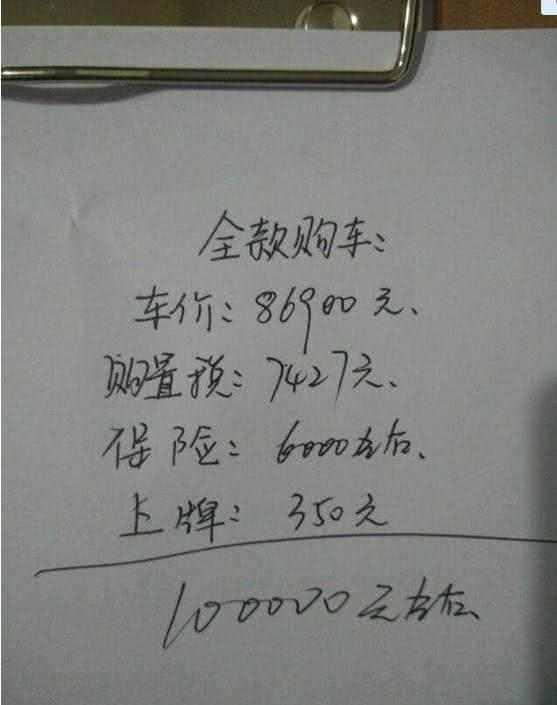 全款购车:
车价: 86900元、
购置税: 7427元、
保险: 6000左右、
上牌: 350元
100000元左右、